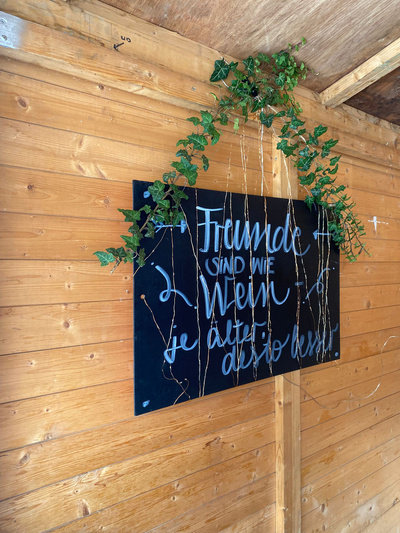 Freunde
SIND WIE
Wein
je älter
desto besser